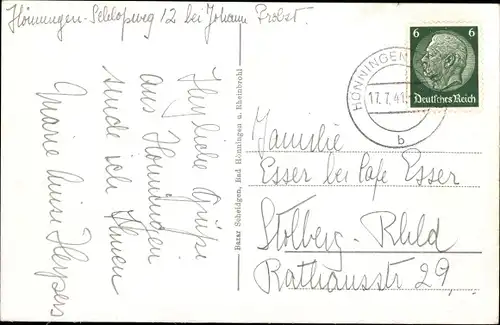 Hönningen-Schlopweg 12 bei Johann Probst.
Herzliche Grüße
aus Hönningen
sende ich Ihnen
Marie Luise Heypers
Bazar Scheidgen, Bad Hönningen u. Rheinbrohl
6 6
Deutsches Reich
HÖNNINGEN
17.7.41
b
Familie
Esser bei Cafe Esser
Stolberg-Rhld
Rathausstr 29,